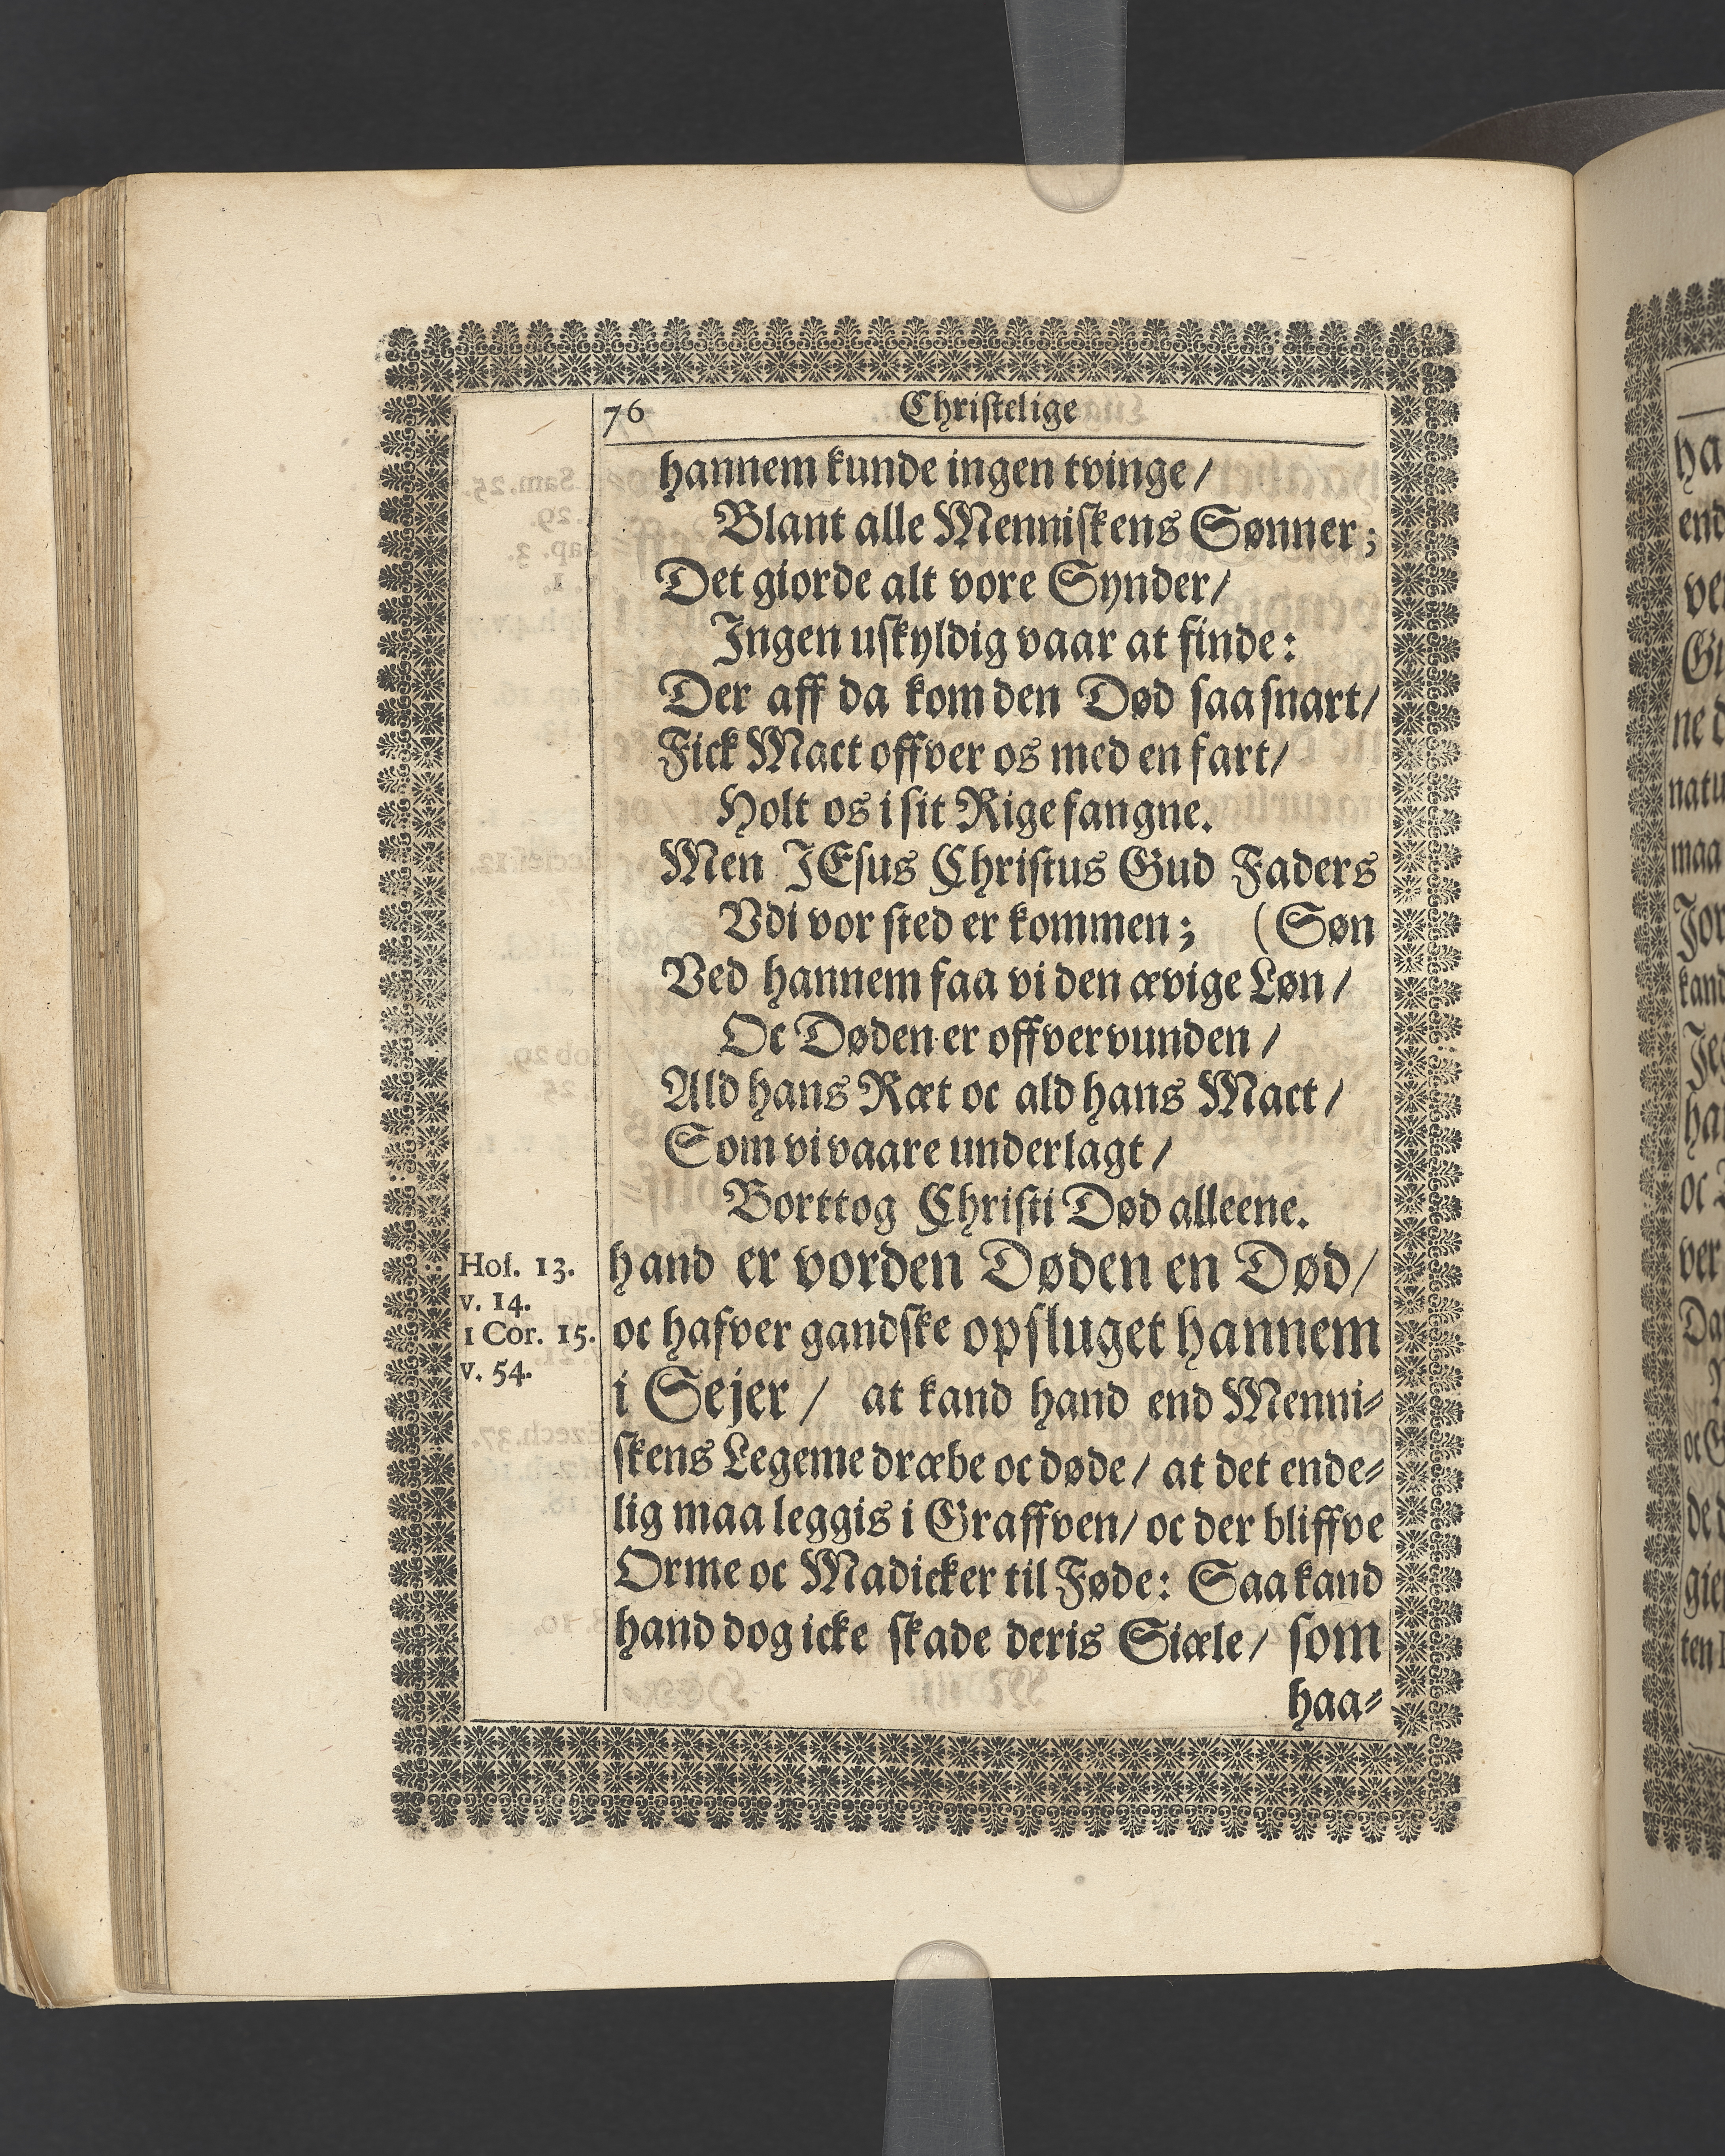 76
Christelige
hannem kunde ingen tvinge/
Blant alle Menniskens Sønner;
Det giorde alt vore Synder/
Ingen uskyldig vaar at finde:
Der aff da kom den Død saa snart/
Fick Mact offver os med en fart/
Holt os i sit Rige fangne.
Men JEsus Christus Gud Faders
Vdi vor sted er kommen; (Søn
Ved hannem faa vi den ævige Løn/
Oc Døden er offvervunden/
Ald hans Ræt oc ald hans Mact/
Som vi vaare underlagt/
Borttog Christi Død alleene.
Hos. 13.
v. 14.
1 Cor. 15.
v. 54.
hand er vorden Døden en Død/
oc hafver gandske opsluget hannem
i Sejer/ at kand hand end Menni-
skens Legeme dræbe oc døde/ at det ende-
lig maa leggis i Graffven/ oc der bliffve
Orme oc Madicker til Føde: Saa kand
hand dog icke skade deris Siæle/ som
haa-